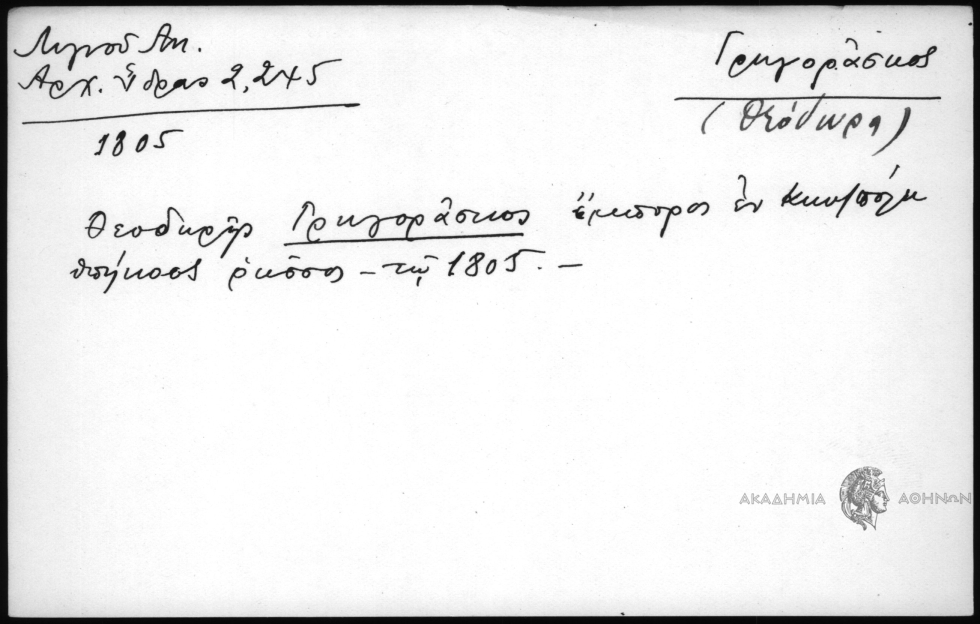 Λιγνοῦ Αν.
Ἀρχ. Ὕδρας 2, 245
1805
Γρηγορᾶσκος
(Θεόδωρα)
Γρηγορᾶσκος ἔμπορος ἐν Κων/πόλει
ὑπήκοος ῥῶσσος – τῷ 1805. –
ΑΚΑΔΗΜΙΑ ΑΘΗΝΩΝ